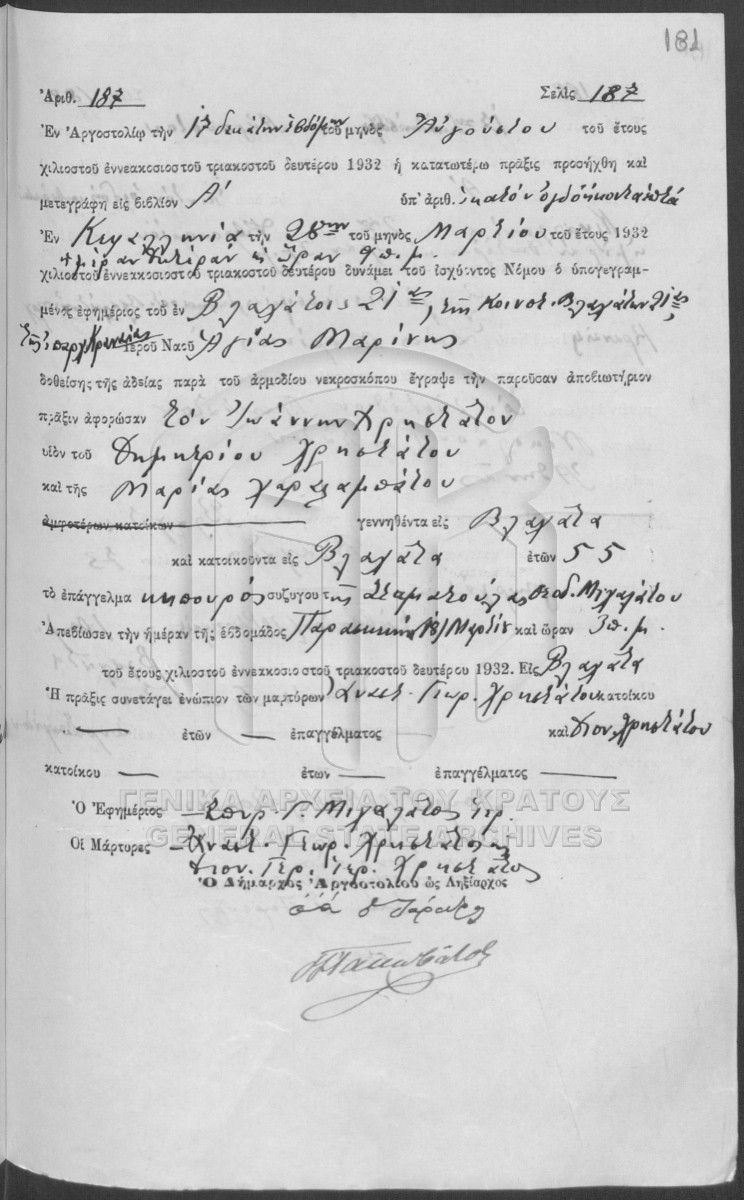 181
Ἀριθ. 187 Σελὶς 187
Ἐν Ἀργοστολίῳ τὴν 17 δεκάτην ἑβδόμην τοῦ μηνὸς Αὐγούστου τοῦ ἔτους
χιλιοστοῦ ἐννεακοσιοστοῦ τριακοστοῦ δευτέρου 1932 ἡ κατωτέρω πρᾶξις προσήχθη καὶ
μετεγράφη εἰς βιβλίον Α' ὑπ' ἀριθ. ἑκατὸν ὀγδοήκοντα ἑπτά
Ἐν Κεφαλληνίᾳ τὴν 28ην τοῦ μηνὸς Μαρτίου τοῦ ἔτους 1932
ἡμέραν Δευτέραν καὶ ὥραν 9 π.μ.
χιλιοστοῦ ἐννεακοσιοστοῦ τριακοστοῦ δευτέρου δυνάμει τοῦ ἰσχύοντος Νόμου ὁ ὑπογεγραμ-
μένος ἐφημέριος τοῦ ἐν Βλαχάτοις τῆς Κοινοτ. Βλαχάτων
τῆς Κραναίας Ἱεροῦ Ναοῦ Ἁγίας Μαρίνης
δοθείσης τῆς ἀδείας παρὰ τοῦ ἁρμοδίου νεκροσκόπου ἔγραψε τὴν παροῦσαν ἀποβιωτήριον
πρᾶξιν ἀφορῶσαν τὸν Ἰωάννην Χρηστάτον
υἱὸν τοῦ Δημητρίου Χρηστάτου
καὶ τῆς Μαρίας Χαραλαμπάτου
ἀμφοτέρων κατοίκων γεννηθέντα εἰς Βλαχᾶτα
καὶ κατοικοῦντα εἰς Βλαχᾶτα ἐτῶν 55
τὸ ἐπάγγελμα κηπουρός συζύγου τῆς Σταματούλας Θεοδ. Μιχαλάτου
Ἀπεβίωσεν τὴν ἡμέραν τῆς ἑβδομάδος Παρασκευὴν Μαρτίου καὶ ὥραν 3 π.μ.
τοῦ ἔτους χιλιοστοῦ ἐννεακοσιοστοῦ τριακοστοῦ δευτέρου 1932. Εἰς Βλαχᾶτα
Ἡ πρᾶξις συνετάγει ἐνώπιον τῶν μαρτύρων Ἀναστ. Γεωρ. Χρηστάτου κατοίκου
— ἐτῶν — ἐπαγγέλματος — καὶ Διον. Χρηστάτου
κατοίκου — ἐτων — ἐπαγγέλματος —
ΓΕΝΙΚΑ ΑΡΧΕΙΑ ΤΟΥ ΚΡΑΤΟΥΣ
GENERAL STATE ARCHIVES
Ὁ Ἐφημέριος Σπυρ. Γ. Μιχαλάτος ἱερ.
Οἱ Μάρτυρες Ἀναστ. Γεωρ. Χρηστάτος
Διον. Γερ. Χρηστάτος
Ὁ Δήμαρχος Ἀργοστολίου ὡς Ληξίαρχος